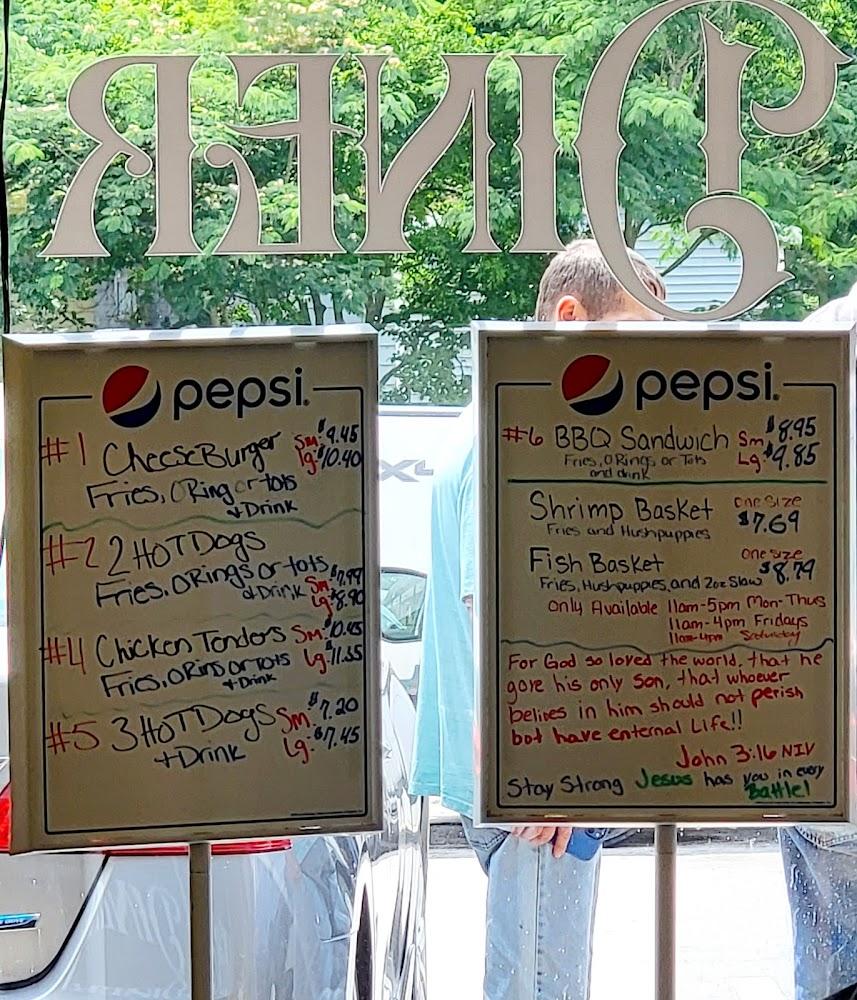 DINER
pepsi.
#1 CheeseBurger Sm. $9.45
Lg. $10.40
Fries, ORing or tots
+ Drink
#2 2 HOTDogs
Fries, ORings or tots $7.99
+ Drink Sm
Lg $8.90
#4 Chicken Tenders Sm. $10.45
Fries, ORing or Tots Lg. $11.55
+ Drink
#5 3 HOTDogs Sm. $7.20
+ Drink Lg. $7.45
pepsi.
#6 BBQ Sandwich Sm $8.95
Fries, ORings or Tots Lg $9.85
and drink
Shrimp Basket one size
Fries and Hushpuppies $7.69
Fish Basket one size
Fries, Hushpuppies, and 2oz Slaw $8.79
only Available 11am-5pm Mon-Thus
11am-4pm Fridays
11am-4pm Saturday
For God so loved the world, that he
gave his only son, that whoever
belives in him should not perish
but have enternal Life!!
John 3:16 NIV
Stay Strong Jesus has you in every
Battle!